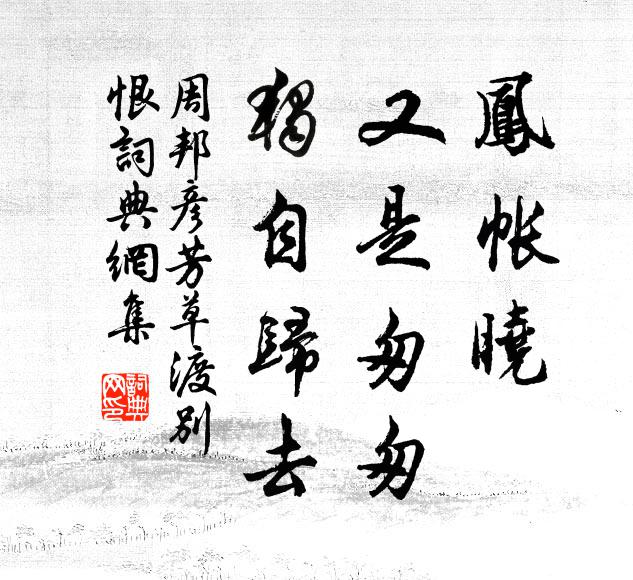 鳳帐曉
又是匆匆
獨自歸去
周邦彥芳草渡別
恨詞典網集
詞典網印